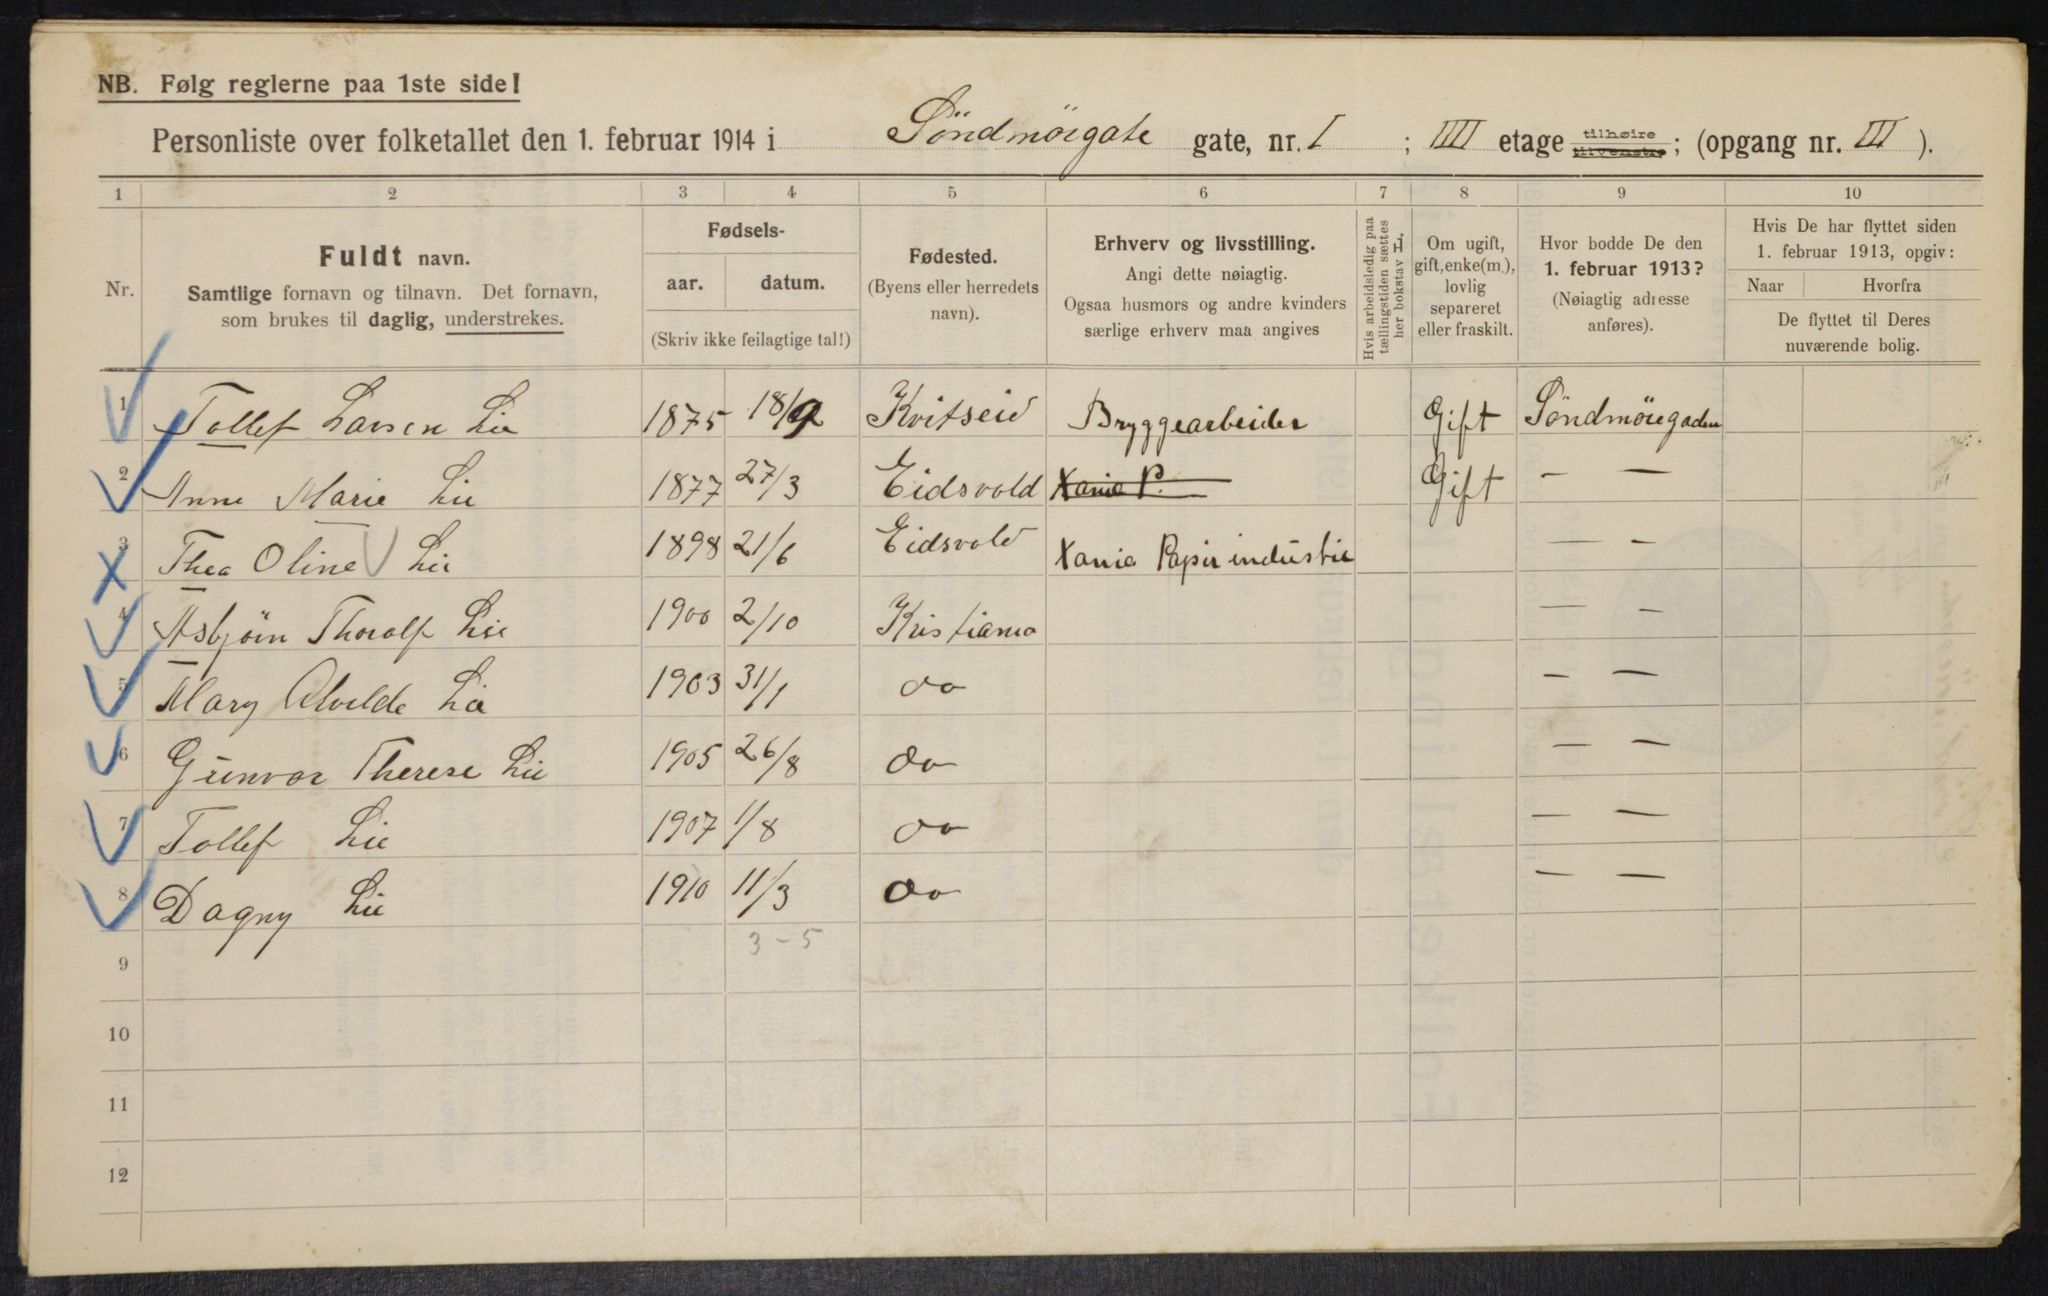 NB. Følg reglerne paa 1ste side!
Personliste over folketallet den 1. februar 1914 i Söndmörgate gate, nr. I ; IIII etage tilhøire tilvenstre; (opgang nr. III ).
1 2 3 4 5 6 7 8 9 10
Nr.
Fuldt navn.
Samtlige fornavn og tilnavn. Det fornavn,
som brukes til daglig, understrekes.
Fødsels-
aar. datum.
(Skriv ikke feilagtige tal!)
Fødested.
(Byens eller herredets
navn).
Erhverv og livsstilling.
Angi dette nøiagtig.
Ogsaa husmors og andre kvinders
særlige erhverv maa angives
Hvis arbeidsledig paa
tællingstiden sættes
her bokstav H.
Om ugift,
gift, enke(m.),
lovlig
separeret
eller fraskilt.
Hvor bodde De den
1. februar 1913?
(Nøiagtig adresse
anføres).
Hvis De har flyttet siden
1. februar 1913, opgiv:
Naar Hvorfra
De flyttet til Deres
nuværende bolig.
1 Tollef Larsen Lie 1875 18/9 Kvitseid Bryggearbeider Gift Söndmöregaden
2 Anne Marie Lie 1877 27/3 Eidsvold Xania P. Gift — —
3 Thea Oline Lie 1898 21/6 Eidsvold Xania Papirindustri — —
4 Asbjörn Thoralf Lie 1900 2/10 Kristiania — —
5 Mary Alvilde Lie 1903 31/1 do — —
6 Gunvor Therese Lie 1905 26/8 do — —
7 Tollef Lie 1907 1/8 do — —
8 Dagny Lie 1910 11/3 do — —
3 - 5
9
10
11
12